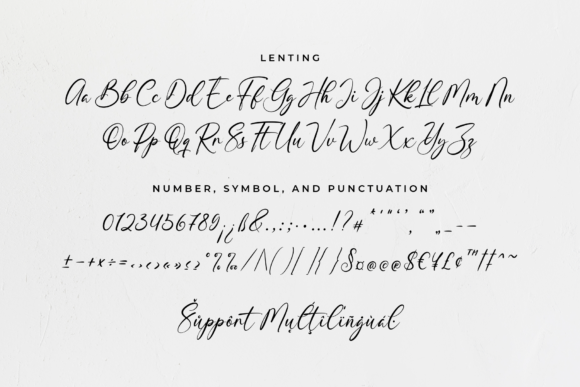 LENTING
Aa Bb Cc Dd Ee Ff Gg Hh Ii Jj Kk Ll Mm Nn
Oo Pp Qq Rr Ss Tt Uu Vv Ww Xx Yy Zz
NUMBER, SYMBOL, AND PUNCTUATION
0123456789¡¿ß&.,:;·•…!?#
±−+×÷= °%‰/\()[]{}§¤@$€¥£¢™^~
Support Multilingual